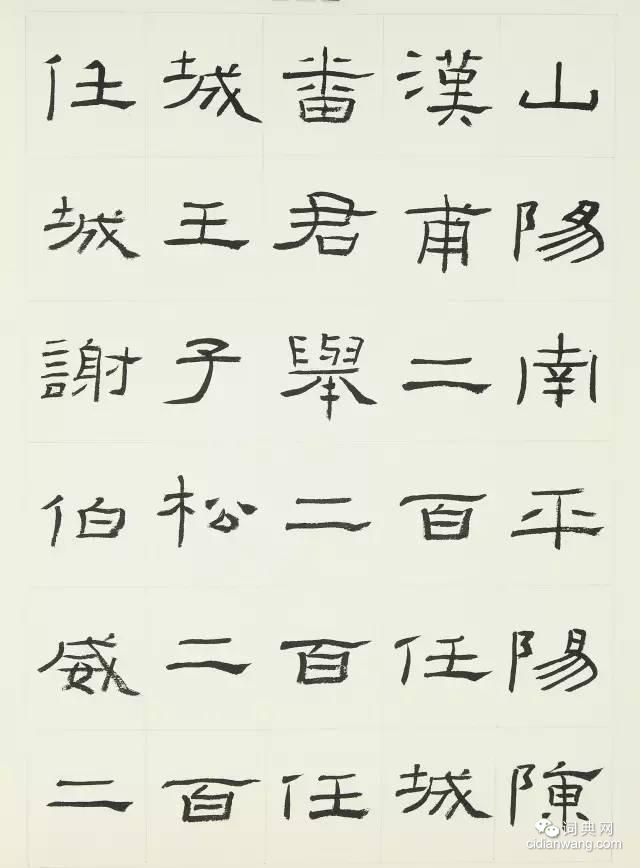 山陽南平陽陳
漢甫二百任城
番君舉二百任
城王子松二百
任城謝伯威二
词典网
cidianwang.com